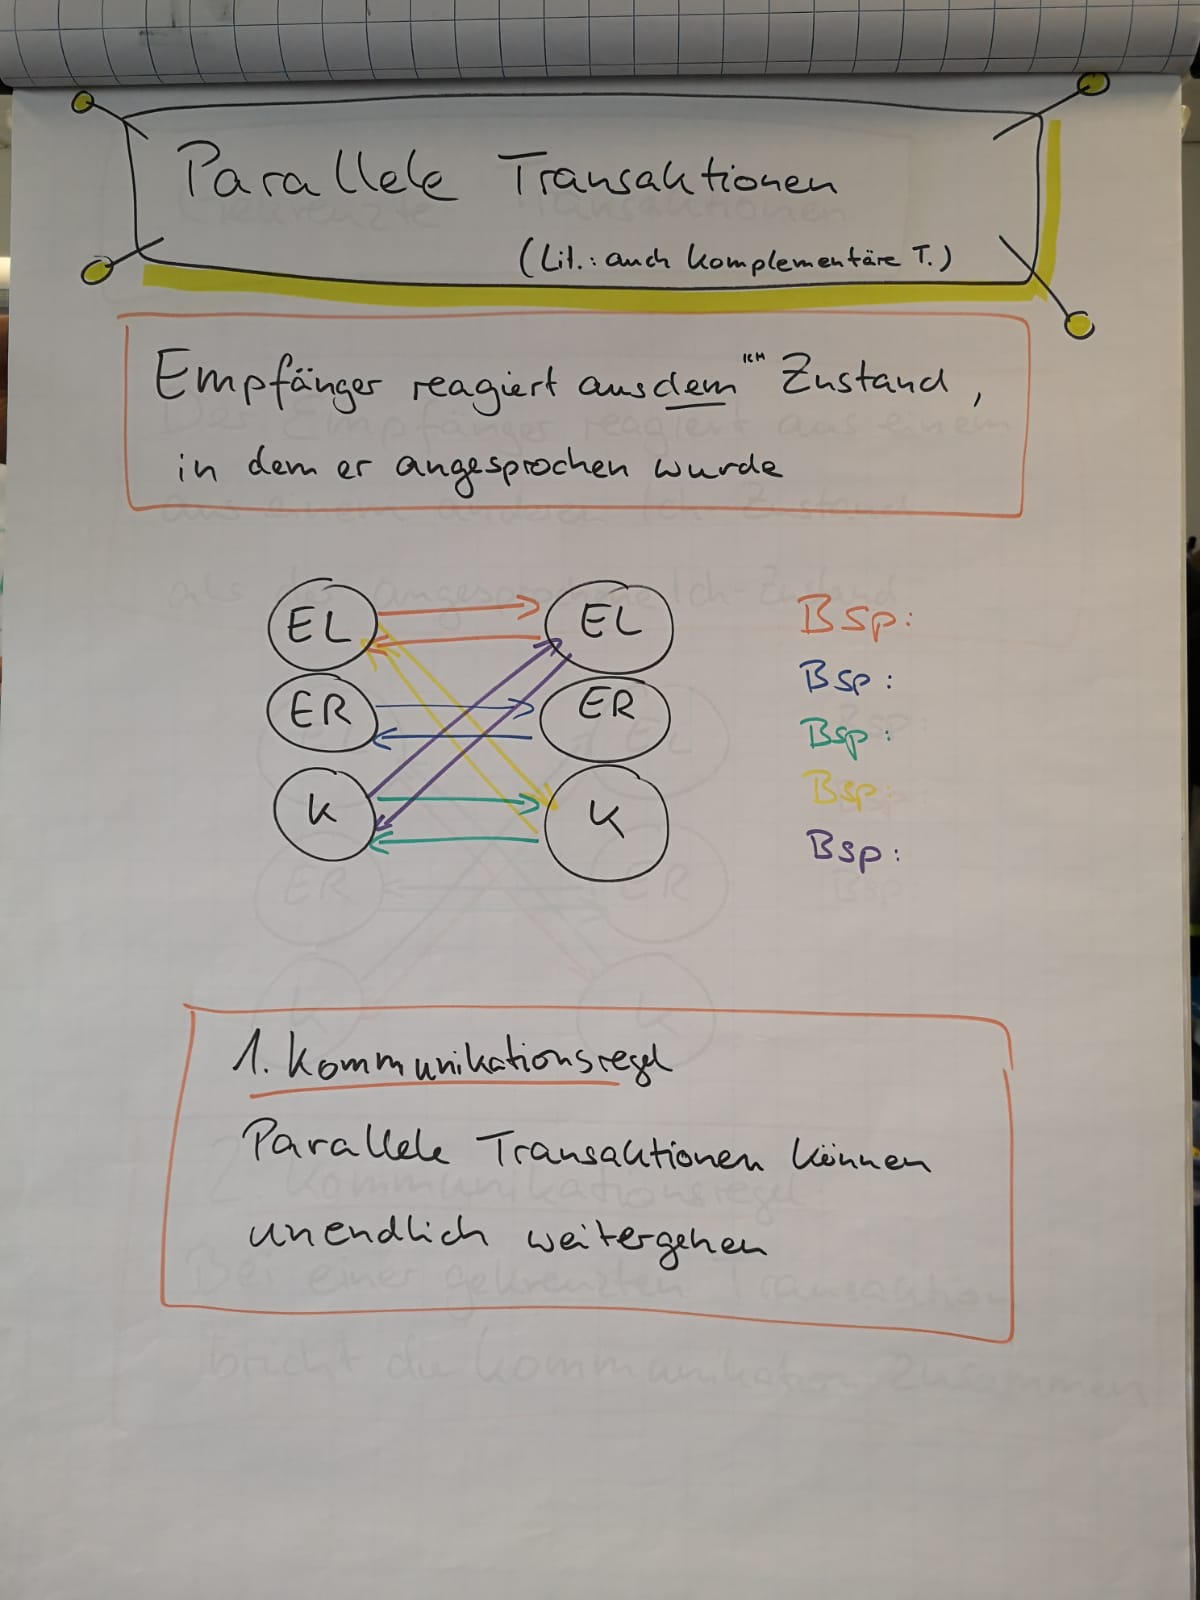 Parallele Transaktionen
(Lit.: auch komplementäre T.)
Empfänger reagiert aus dem ICH Zustand,
in dem er angesprochen wurde
EL EL Bsp:
ER ER Bsp:
Bsp:
K K Bsp:
Bsp:
1. Kommunikationsregel
Parallele Transaktionen können
unendlich weitergehen